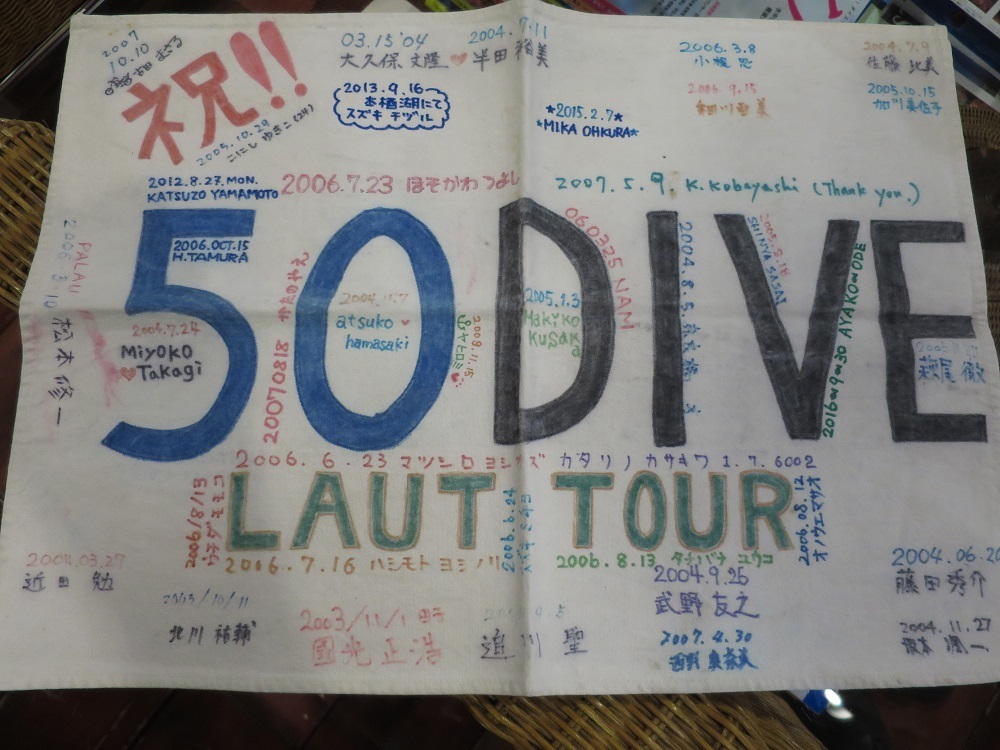 2007
10.10
祝!!
2005.10.29
こにし ゆきこ
03.15'04
大久保 文隆 ♥ 半田 裕美
2004.7.11
2013.9.16〜
お栖湖にて
スズキ チヅル
★2015.2.7★
★MIKA OHKURA★
2006.3.8
2006.9.15
2004.7.9
佐藤 比美
2005.10.15
2012.8.27.MON.
KATSUZO YAMAMOTO
2006.7.23 ほそかわ つよし
2007.5.9. K.Kobayashi (Thank you.)
50 DIVE
2006.OCT.15
H.TAMURA
PALAU
2006.3.10 松本 修一
2005.7.24
MiYOKO
♥Takagi
20070818
2004.11.7
atsuko ♥
hamasaki
2009.11.15
2005.1.3
Makiko
Kusaka
060325 NAM
2004.8.5
SHINYA SASAI
2016.9.30 AYAKO ODE
2006.6.23 マツシロ ヨシカズ
カタリノ カサキワ 1.7.6002
2006/8/13
LAUT TOUR
2006.6.24
2006.08.12
オノウエマサオ
2006.7.16 ハシモト ヨシノリ
2006.8.13 タチバナ ユウコ
2004.03.27
近田 勉
2004.9.25
武野 友之
2004.06.20
藤田 秀介
2003/10/11
北川 祐輔
2003/11/1
國光 正浩
追川 聖
2007.4.30
西野 奥奈美
2004.11.27